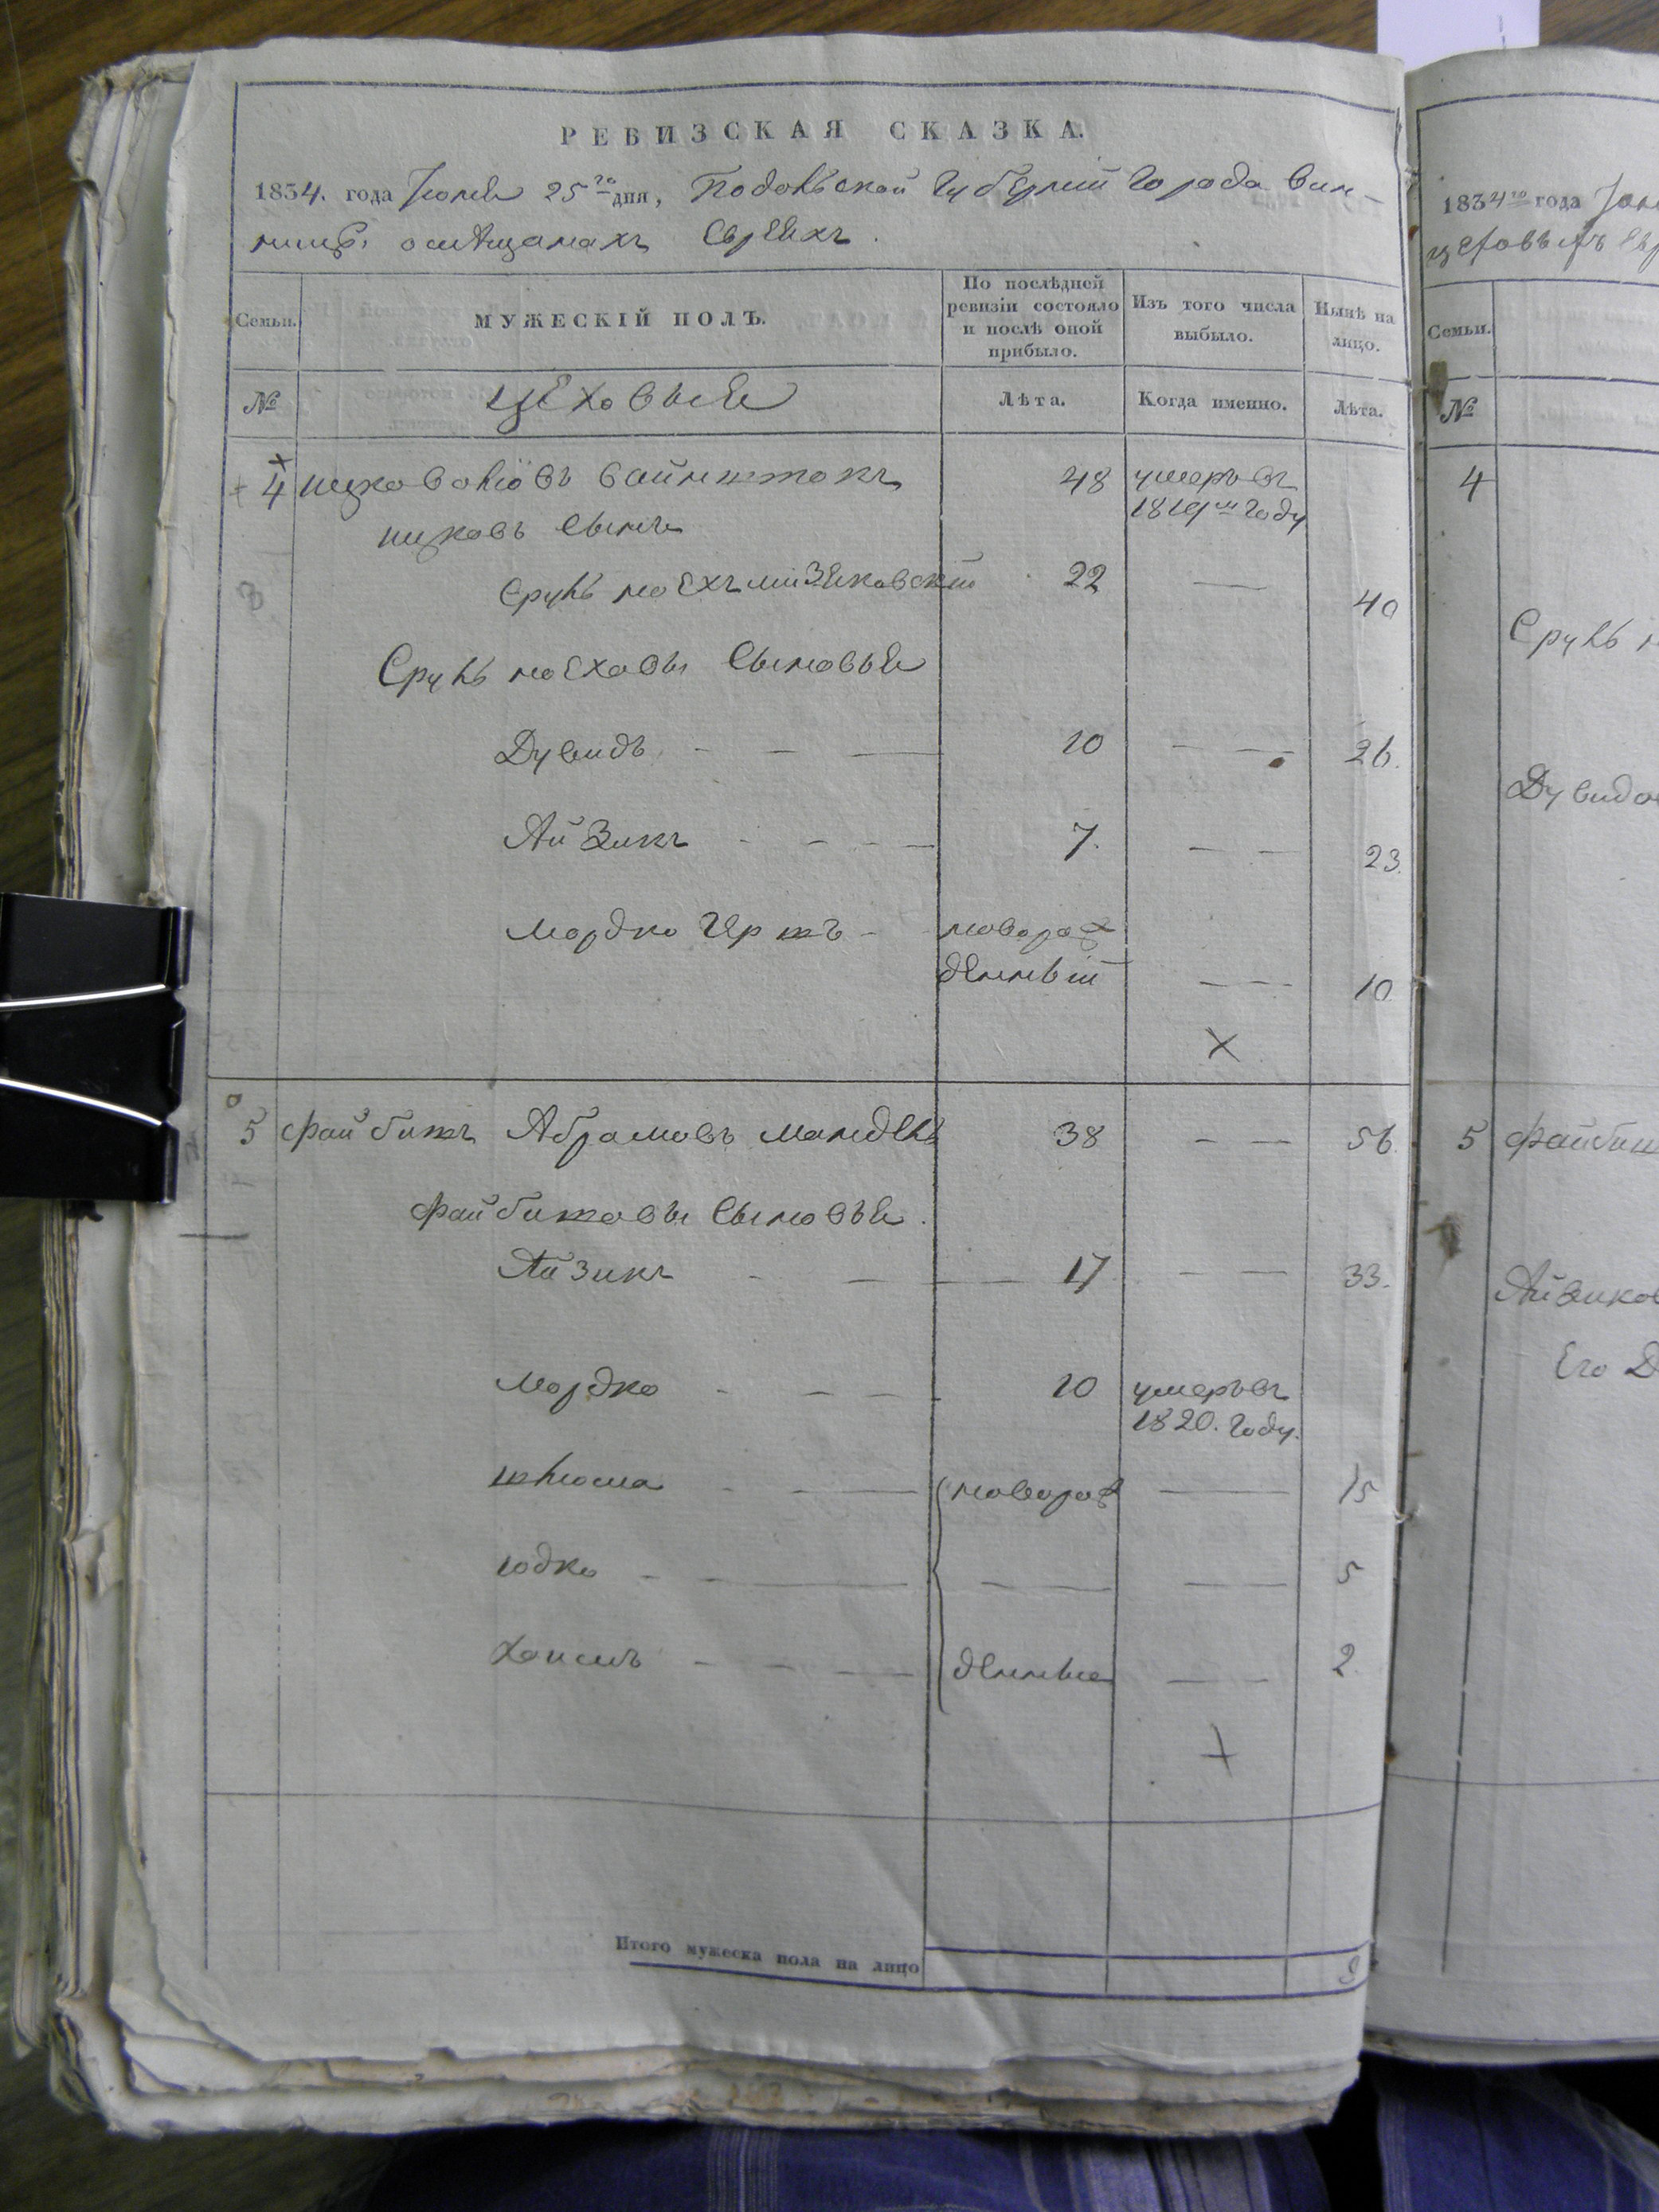 РЕВИЗСКАЯ СКАЗКА.
1834. года Іюня 25го дня, Подольской Губерніи Города Вин-
ницы о мещанахъ Евреяхъ.
Семьи.
МУЖЕСКІЙ ПОЛЪ.
По послѣдней ревизіи состояло и послѣ оной прибыло.
Изъ того числа выбыло.
Нынѣ на лицо.
№
Цеховые
Лѣта.
Когда именно.
Лѣта.
4 Ицко Вайншток 48 умеръ въ
1819м году
Ицковъ сынъ
Сруль Ноехъ 22 — 40
Сруль Ноеховы сыновья
Дувидъ — — — 10 — — 26.
Айзикъ - - - - 7. — — 23.
Мордко Герш - новорож
денный — — 10
X
5 Файбишъ Абрамовъ Мандель 38 — — 56
Файбишовы сыновья.
Айзикъ - — — 17 — — 33.
Мордко - — — - 10 умеръ въ
1820. году.
Шлиома - — новорож — 15
Юдко - - — — — — — 5
Хаимъ - - — — денные — 2
+
Итого мужеска пола на лицо 9
1834го года
цеховыхъ
Семьи.
№
4
Сруль
5 Файбиш
Его